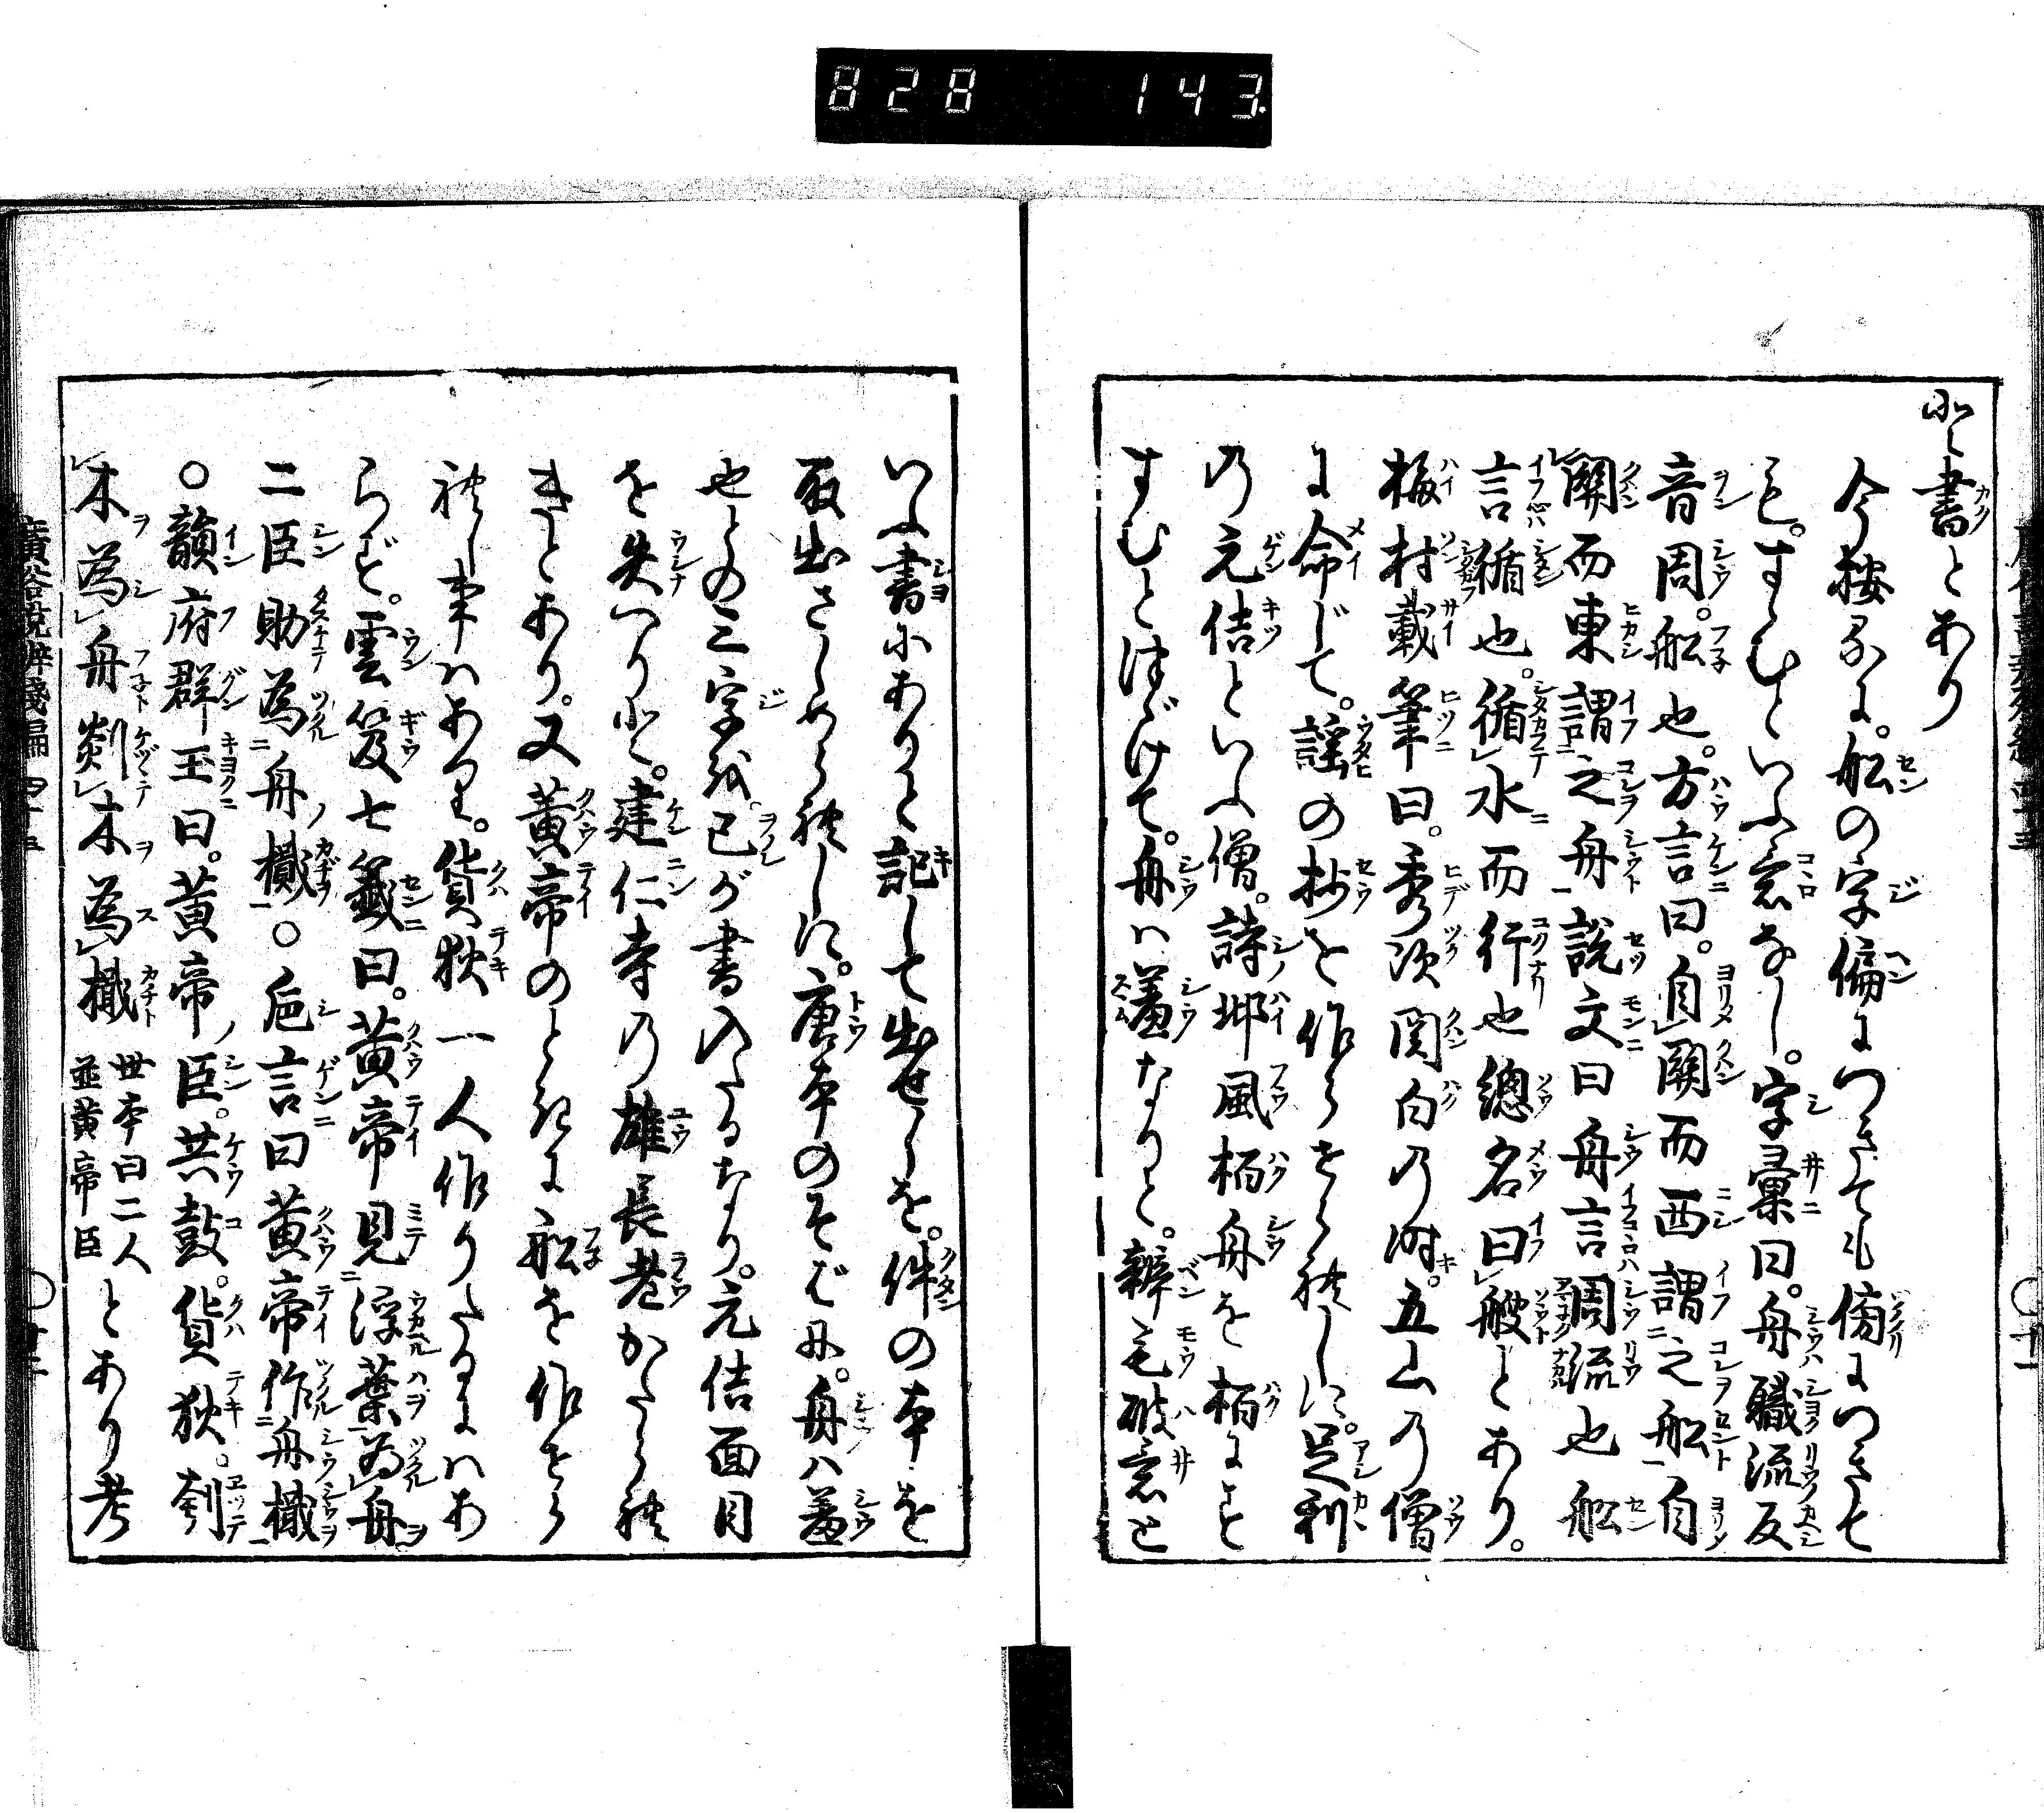 828 143.
と書とあり
今按るに。船の字偏につきても傍につきて
も。すゝむといふ意なし。字彙曰。舟職流反
音周。船也。方言曰。自關而西謂之船自
關而東謂之舟說文曰舟言周流也船
言循也。循水而行也總名曰艘とあり。
梅村載筆曰。秀次関白乃時。五山乃僧
に命じて。謡の抄を作らせられしに。足利
乃元佶といふ僧。詩邶風栢舟を栢にす
すむと注づけて。舟ハ羞なりと。辨毛破意と
いふ書にありと記して出せしを。件の本を
取出さしめられしに。唐本のそばに。舟ハ羞
也との三字を。已が書入たるなり。元佶面目
を失へりと。建仁寺乃雄長老かたられ
きとあり。又黄帝のときに船を作らせら
れし事ハあれど。貨狄一人作りたるにハあ
らず。雲笈七籤曰。黄帝見浮葉為舟
二臣助為舟檝○巵言曰黄帝作舟檝
○韻府群玉曰。黄帝臣。共鼓。貨狄。刳
木為舟剡木為檝 世本曰二人並黄帝臣 とあり考
廣益俗説辨残編 四十五